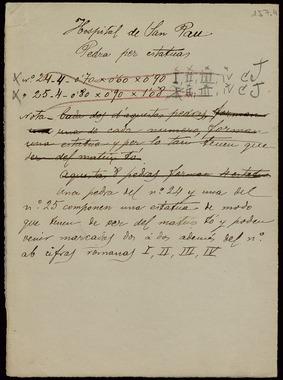 257.4
Hospital de San Pau
Pedra per estatuas
nº 24.4 - 0'70 x 0'60 x 0'90 I, II, III, IV CJ
nº 25.4 - 0'80 x 0'90 x 1'08
Nota - Cada dos d'aquestes pedras, forman
una de cada numero, forman
una estatua y per lo tan tenen que
ser del mateix to.
Aquestes 8 pedras forman 4 estatuas
Una pedra del nº 24 y una del
nº 25 componen una estatua de modo
que tenen de ser del mateix tó y poden
venir marcadas dos á dos además del nº
ab cifras romanas I, II, III, IV